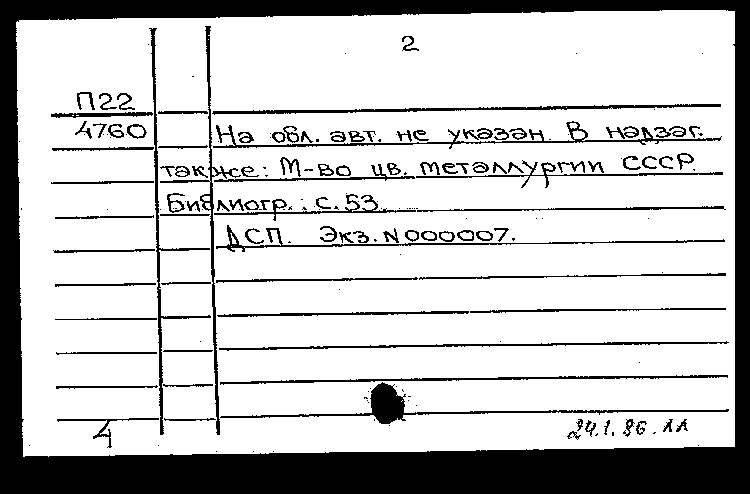 2
П22
4760 На обл. авт. не указан. В надзаг.
также: М-во цв. металлургии СССР.
Библиогр.: с. 53.
ДСП. Экз. N 000007.
4 24.1.86. ЛЛ